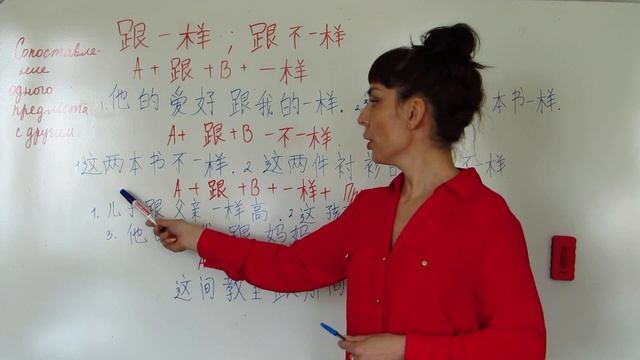 Сопоставле-
ние
одного
предмета
с другим
跟一样；跟不一样
A + 跟 + B + 一样
1. 他的爱好跟我的一样. 2. 本书一样.
A + 跟 + B - 不一样.
1. 这两本书不一样. 2. 这两件衬衫 不一样
A + 跟 + B + 一样 +
1. 儿子跟父亲一样高. 2. 这
3. 他 跟妈妈
这间教室跟